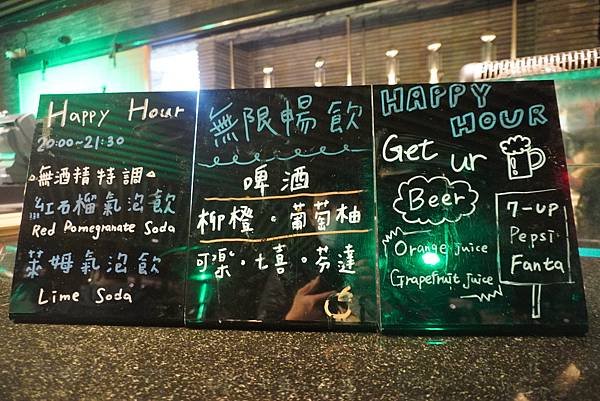 Happy Hour
20:00~21:30
無酒精特調
紅石榴氣泡飲
Red Pomegranate Soda
萊姆氣泡飲
Lime Soda
無限暢飲
啤酒
柳橙。葡萄柚
可樂。七喜。芬達
HAPPY
HOUR
Get ur
Beer
Orange juice
Grapefruit juice
7-UP
Pepsi
Fanta